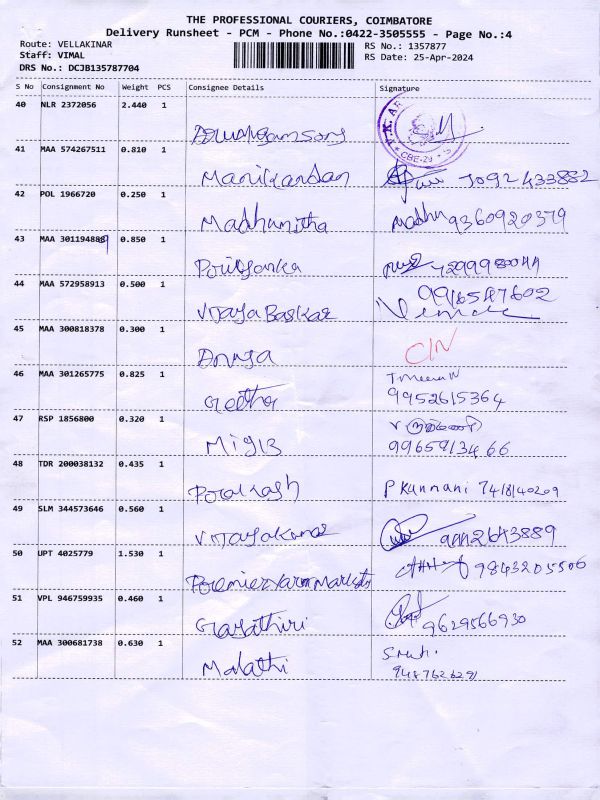 THE PROFESSIONAL COURIERS, COIMBATORE
Delivery Runsheet - PCM - Phone No.:0422-3505555 - Page No.:4
Route: VELLAKINAR
RS No.: 1357877
Staff: VIMAL
RS Date: 25-Apr-2024
DRS No.: DCJB135787704
S No Consignment No Weight PCS Consignee Details Signature
40 NLR 2372056 2.440 1
CBE-29
41 MAA 574267511 0.810 1
Manikandan
42 POL 1966720 0.250 1
Madhumitha Madhu 9360920379
43 MAA 301194889 0.850 1
Priyanka
44 MAA 572958913 0.500 1
Vijaya Baskar
45 MAA 300818378 0.300 1
46 MAA 301265775 0.825 1
Geetha 9952615364
47 RSP 1856800 0.320 1
9965913466
48 TDR 200038132 0.435 1
Prakash P Kannani 7418140209
49 SLM 344573646 0.560 1
50 UPT 4025779 1.530 1
9843205506
51 VPL 946759935 0.460 1
Gayathiri 9629566930
52 MAA 300681738 0.630 1
Malathi